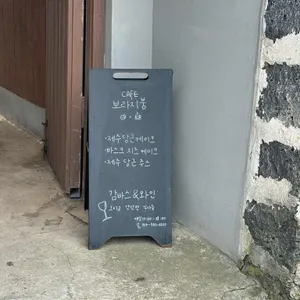 CAFE
보라지붕
·제주 당근 케이크
·바스크 치즈 케이크
·제주 당근 주스
감바스 & 와인